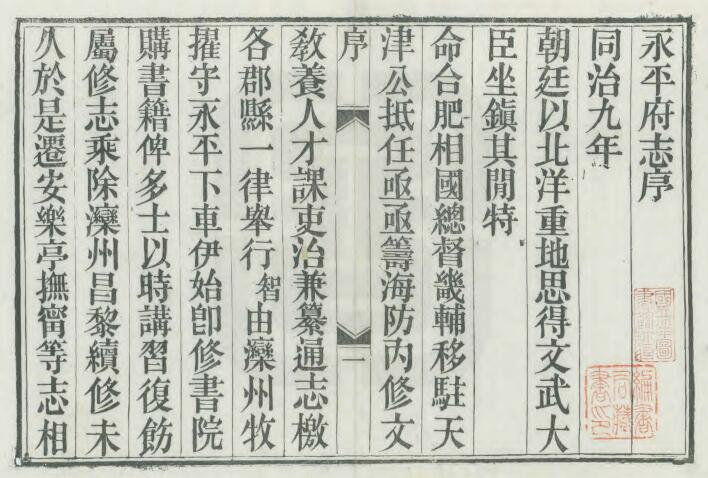 永平府志序
同治九年
朝廷以北洋重地思得文武大
臣坐鎮其閒特
命合肥相國總督畿輔移駐天
津公抵任亟亟籌海防内修文
序
一
敎養人才課吏治兼纂通志檄
各郡縣一律舉行智由灤州牧
擢守永平下車伊始卽修書院
購書籍俾多士以時講習復飭
屬修志乘除灤州昌黎續修未
久於是遷安樂亭撫甯等志相